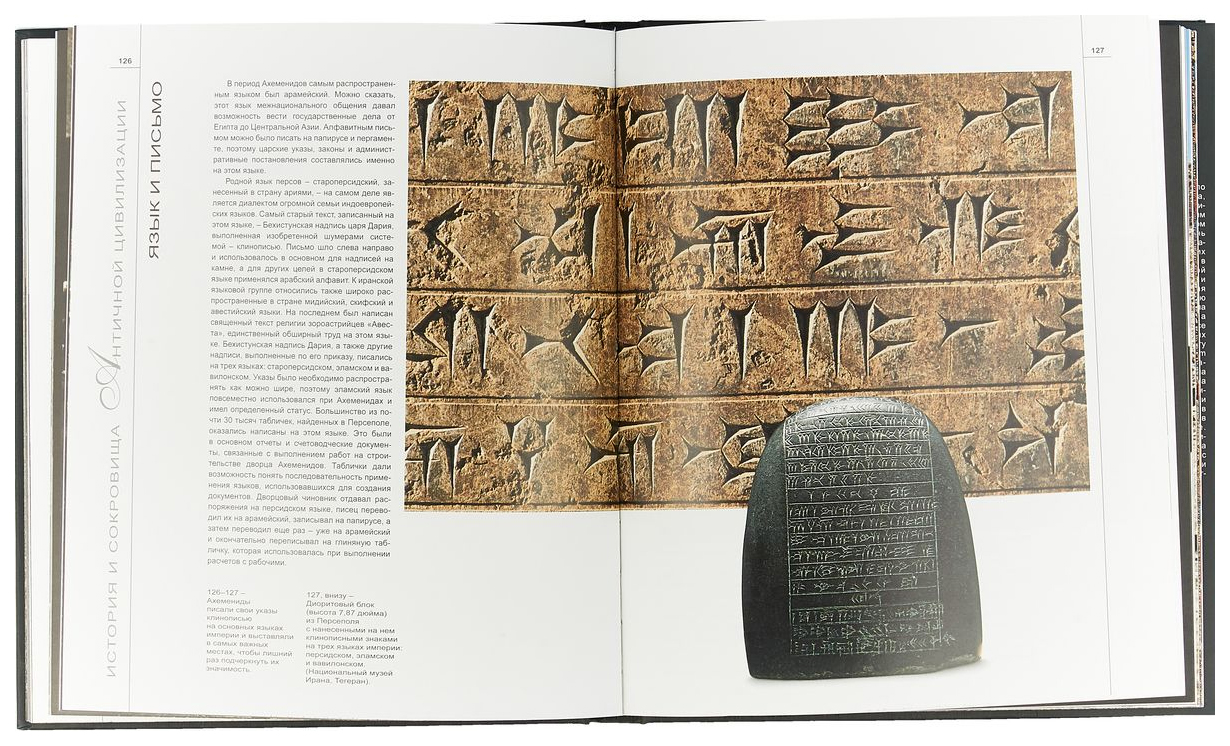 126
127
ИСТОРИЯ И СОКРОВИЩА Античной цивилизации
ЯЗЫК И ПИСЬМО
В период Ахеменидов самым распространен-
ным языком был арамейский. Можно сказать,
этот язык межнационального общения давал
возможность вести государственные дела от
Египта до Центральной Азии. Алфавитным пись-
мом можно было писать на папирусе и пергамен-
те, поэтому царские указы, законы и админист-
ративные постановления составлялись именно
на этом языке.
Родной язык персов – староперсидский, за-
несенный в страну ариями, – на самом деле яв-
ляется диалектом огромной семьи индоевропей-
ских языков. Самый старый текст, записанный на
этом языке, – Бехистунская надпись царя Дария,
выполненная изобретенной шумерами систе-
мой – клинописью. Письмо шло слева направо
и использовалось в основном для надписей на
камне, а для других целей в староперсидском
языке применялся арабский алфавит. К иранской
языковой группе относились также широко рас-
пространенные в стране мидийский, скифский и
авестийский языки. На последнем был написан
священный текст религии зороастрийцев «Авес-
та», единственный обширный труд на этом язы-
ке. Бехистунская надпись Дария, а также другие
надписи, выполненные по его приказу, писались
на трех языках: староперсидском, эламском и ва-
вилонском. Указы было необходимо распростра-
нять как можно шире, поэтому эламский язык
повсеместно использовался при Ахеменидах и
имел определенный статус. Большинство из по-
чти 30 тысяч табличек, найденных в Персеполе,
оказались написаны на этом языке. Это были
в основном отчеты и счетоводческие докумен-
ты, связанные с выполнением работ на строи-
тельстве дворца Ахеменидов. Таблички дали
возможность понять последовательность приме-
нения языков, использовавшихся для создания
документов. Дворцовый чиновник отдавал рас-
поряжения на персидском языке, писец перево-
дил их на арамейский, записывал на папирусе, а
затем переводил еще раз – уже на арамейский
и окончательно переписывал на глиняную таб-
личку, которая использовалась при выполнении
расчетов с рабочими.
126–127 –
Ахемениды
писали свои указы
клинописью
на основных языках
империи и выставляли
в самых важных
местах, чтобы лишний
раз подчеркнуть их
значимость.
127, внизу –
Диоритовый блок
(высота 7,87 дюйма)
из Персеполя
с нанесенными на нем
клинописными знаками
на трех языках империи:
персидском, эламском
и вавилонском.
(Национальный музей
Ирана, Тегеран).